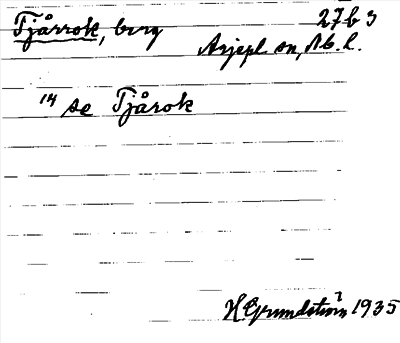 Tjårrok, berg 27b3
Arjepl sn, Nb. l.
14 se Tjårok
H Grundström 1935